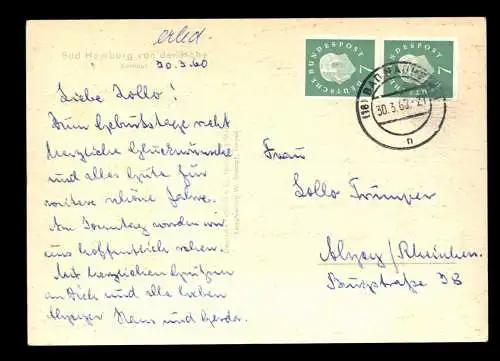 erled.
Bad Homburg von der Höhe
Kurhaus
30.3.60
Liebe Lollo!
Zum Geburtstage recht
herzliche Glückwünsche
und alles Gute für
weitere schöne Jahre.
Am Sonntag werden wir
uns hoffentlich sehen.
Mit herzlichen Grüßen
an Dich und alle lieben
Alzeyer Hans und Gerda.
DEUTSCHE BUNDESPOST
7
DEUTSCHE BUNDESPOST
7
(16) BAD NAUHEIM
30.3.60-21
n
Frau
Lollo Trümper
Alzey/Rheinhess.
Burgstraße 38